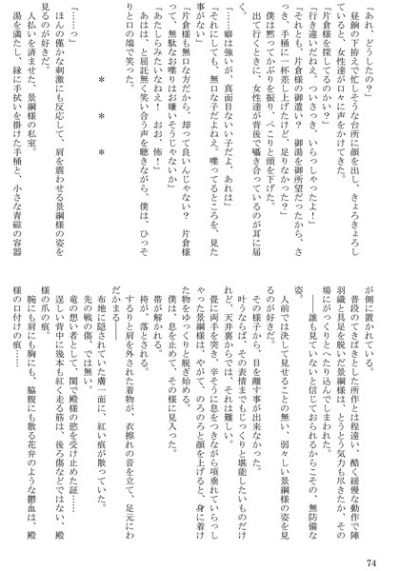 「あれ、どうしたの？」
昼餉の下拵えで忙しそうな台所に顔を出し、きょろきょろし
ていると、女性達が口々に声をかけてきた。
「片倉様を探してるのかい？」
「行き違いだねえ。ついさっき、いらっしゃったよ！」
「片倉様の御遣い？　御湯を御所望だったから、さ
っき、手桶に一杯差し上げたけど、足りなかった？」
僕は黙ってかぶりを振り、ぺこりと頭を下げた。
出て行くときに、女性達が背後で囁き合っているのが耳に届
く。
「……癖は強いが、真面目ないい子だよ、あれは」
「それにしても、無口な子だよねえ。喋ってるところを、見た
事がない」
「片倉様も無口な方だから、却って良いんじゃない？　片倉様
って、無駄なお喋りはお嫌いそうじゃないか」
「あたしらみたいなねえ！　おお、怖！」
あはは、と屈託無く笑い合う声を聴きながら、僕は、ひっそ
りと口の端で笑った。
＊　＊　＊
「……っ」
ほんの僅かな刺激にも反応して、肩を震わせる景綱様の姿を
見るのが好きだ。
人払いを済ませた、景綱様の私室。
湯を満たし、縁に手拭いを掛けた手桶と、小さな青磁の容器
が側に置かれている。
普段のてきぱきとした所作とは程遠い、酷く緩慢な動作で陣
羽織と具足を脱いだ景綱様は、とうとう気力も尽きたか、その
場にがっくりとへたり込んでしまわれた。
――誰も見ていないと信じておられるからこその、無防備な
姿。
人前では決して見せることの無い、弱々しい景綱様の姿を見
るのが好きだ。
その様子から、目を離す事が出来なかった。
叶うならば、その表情までもじっくりと堪能したいものだけ
れど、天井裏からでは、それは難しい。
畳に両手を突き、辛そうに息をつきながら項垂れていらっし
ゃった景綱様は、やがて、のろのろと顔を上げると、身に着け
た物をゆっくりと脱ぎ始める。
僕は、息を止めて、その様に見入った。
帯が解かれる。
袴が、落とされる。
するりと肩を外された着物が、衣擦れの音を立て、足元にわ
だかまる――
布地に隠されていた膚一面に、紅い痕が散っていた。
先の戦の傷、では無い。
竜の想い者として、閨で殿様の慾を受け止めた証――
逞しい背中に幾本も紅く走る筋は、後ろ傷などではない、殿
様の爪の痕。
腕にも肩にも胸にも、脇腹にも散る花弁のような鬱血は、殿
様の口付けの痕……
74